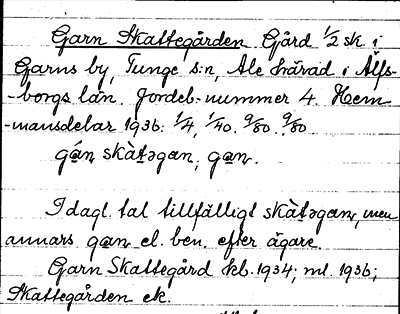 Garn Skattegården Gård 1/2 sk i
Garns by, Tunge s:n, Ale härad i Älfs-
-borgs län. Jordeb:-nummer 4. Hem
-mansdelar 1936: 1/4, 1/40. 9/80. 9/80
gán skàtəgan; gan.
I dagl. tal tillfälligt skàtəgan, men
annars gan el. ben. efter ägare
Garn Skattegård kb. 1934; ml. 1936;
Skattegården ek.